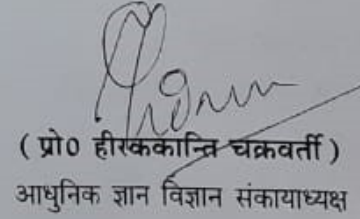 ( प्रो0 हीरककान्ति चक्रवर्ती )
आधुनिक ज्ञान विज्ञान संकायाध्यक्ष